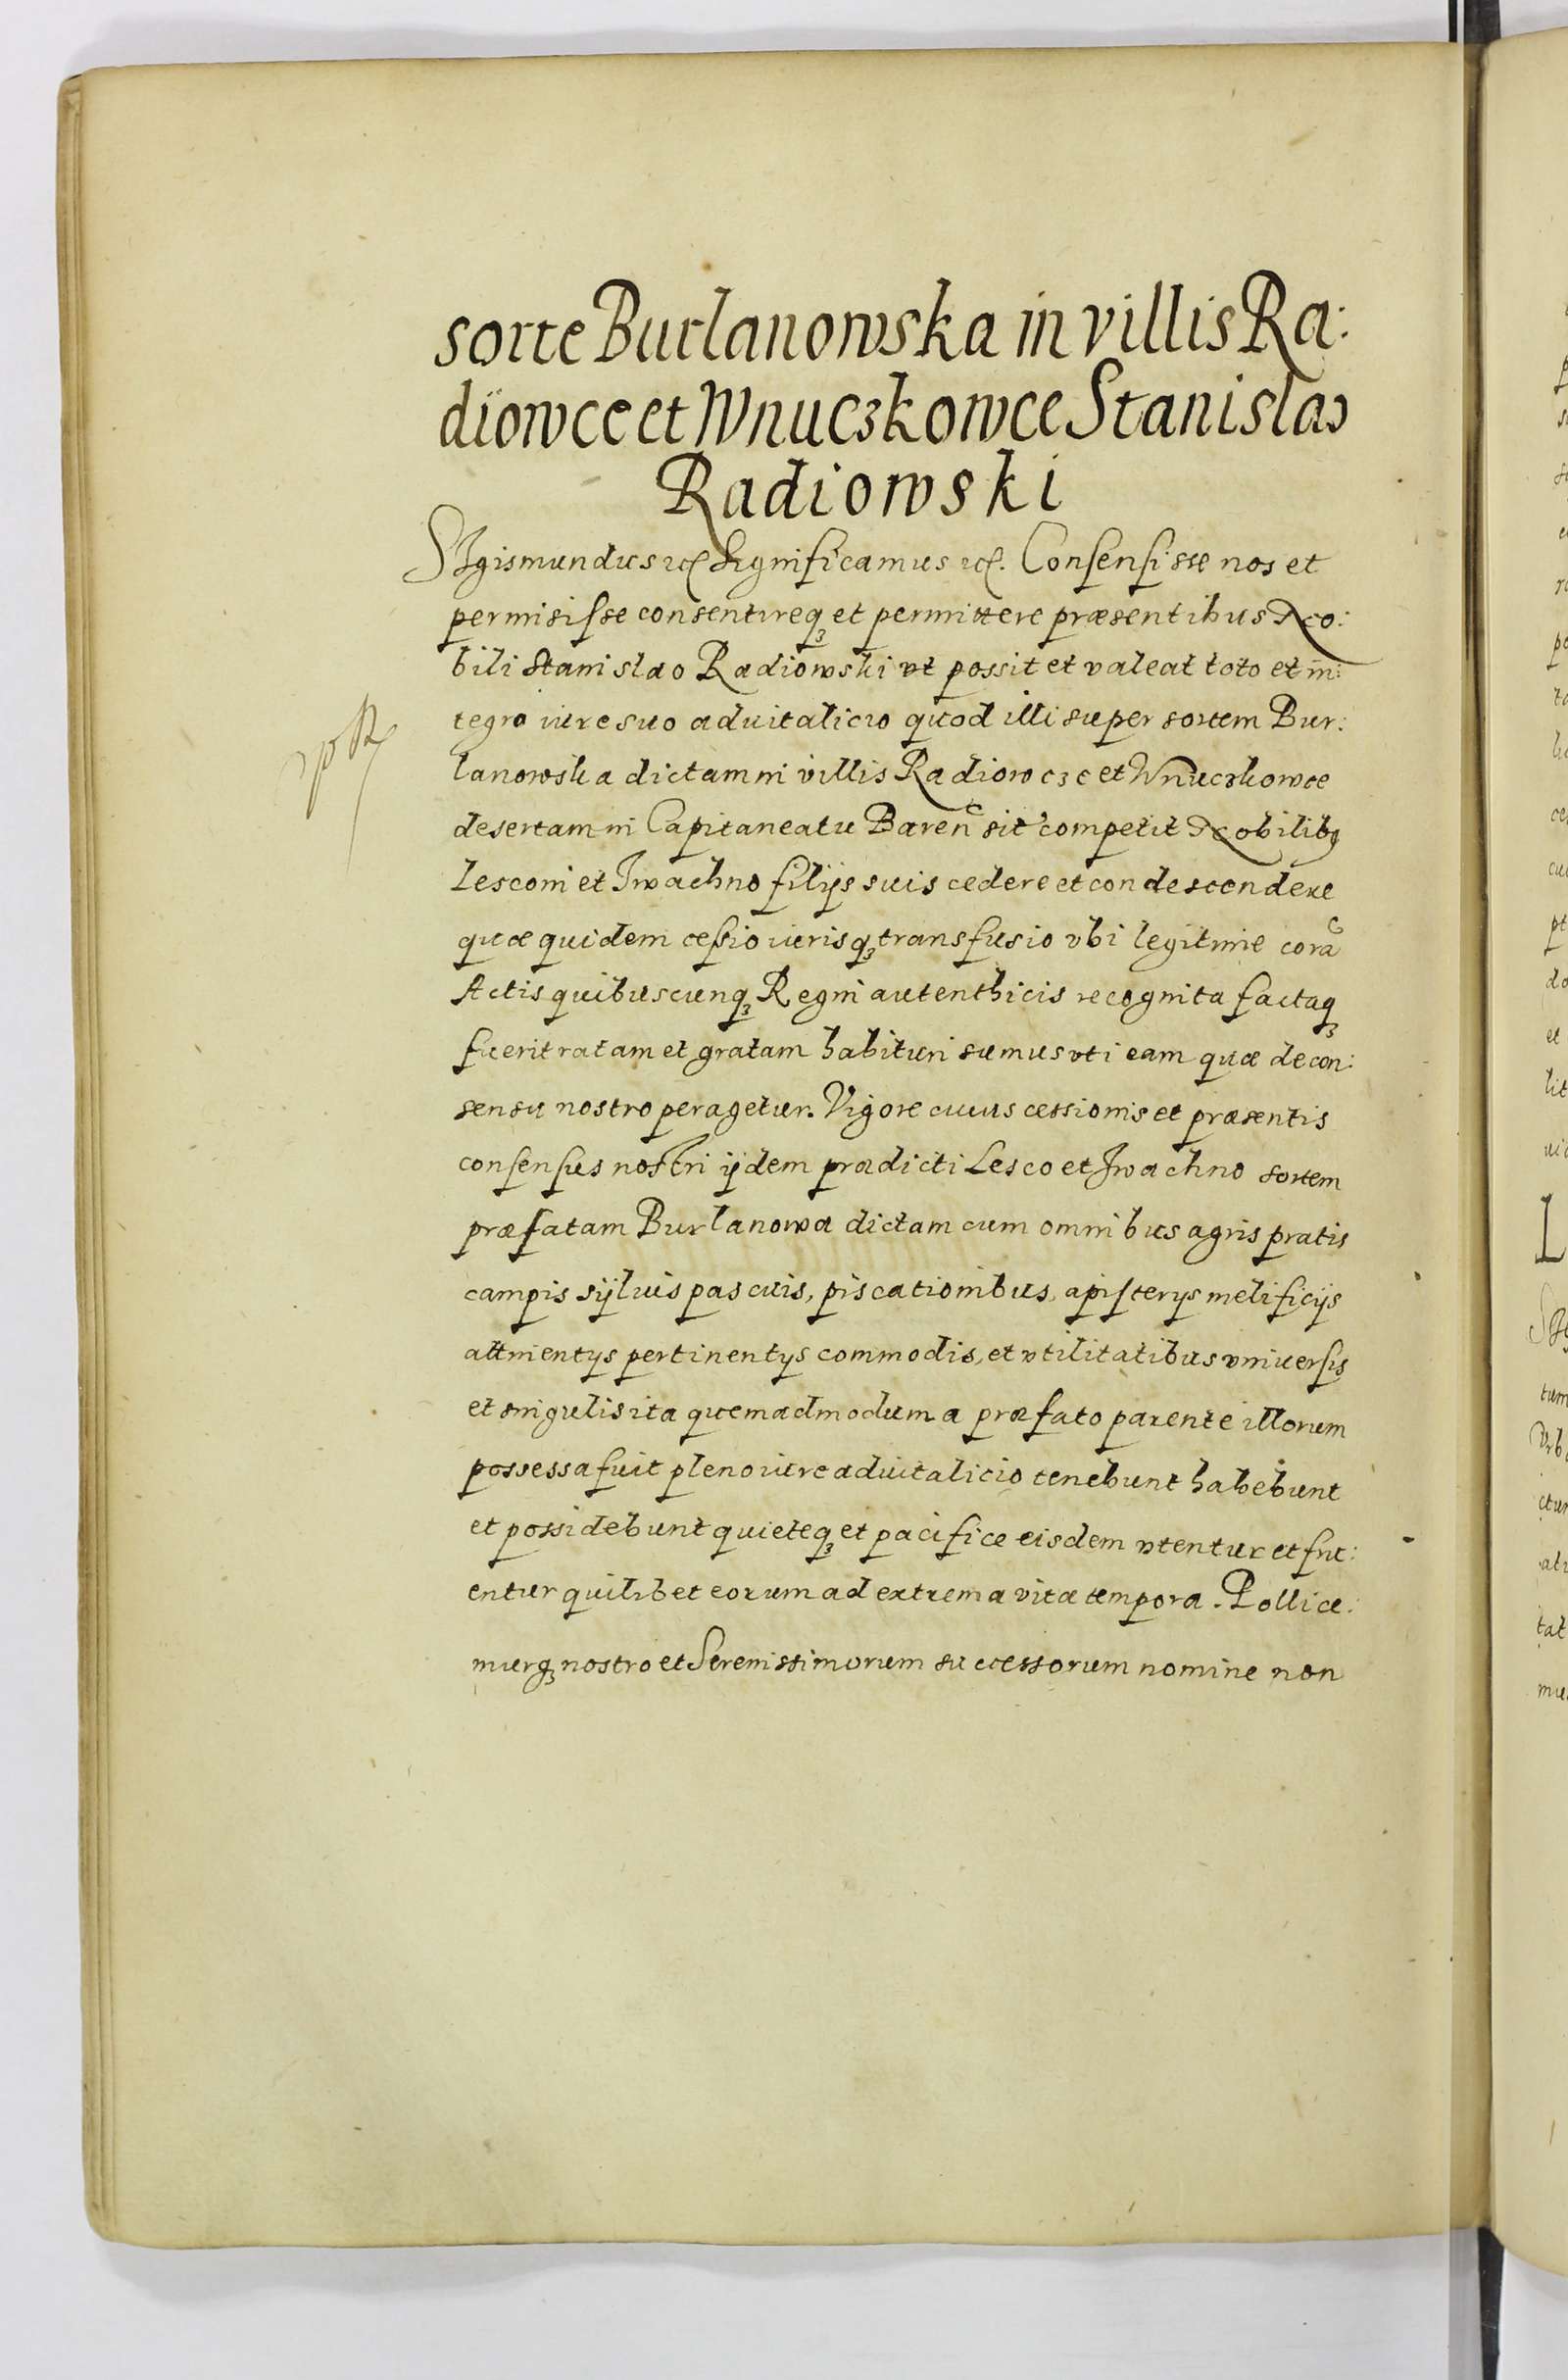 sorte Burlanowska in villis Ra:
diowce et Wnuczkowce Stanislao
Radiowski
SIgismundus etc Significamus etc. Consensisse nos et
permisisse consentireq3 et permittere præsentibus No:
bili Stanislao Radiowski vt possit et valeat toto et in:
tegro iure suo aduitalicio quod illi super sortem Bur:
lanowska dictam in villis Radiowcze et Wnuczkowce
desertam in Capitaneatu Baren̄ sit̃ competit Nobilib9
Lesconi et Iwachno filijs suis cedere et condescendere
quæ quidem cessio iurisq3 transfusio vbi legitime corã
Actis quibuscunq3 Regni autenthicis recognita factaq3
fuerit ratam et gratam habituri sumus vti eam quæ de con:
sensu nostro peragetur. Vigore cuius cessionis et præsentis
consensus nostri ijdem prædicti Lesco et Iwachno sortem
præfatam Burlanowa dictam cum omnibus agris pratis
campis syluis pascuis, piscationibus, apisterys melificijs
attinentys pertinentys commodis, et vtilitatibus vniuersis
et singulis ita quemadmodum a præfato parente illorum
possessa fuit pleno iure aduitalicio tenebunt habebunt
et possidebunt quieteq3 et pacifice eisdem vtentur et fru:
entur quilibet eorum ad extrema vitæ tempora. Pollice:
murq3 nostro et Serenissimorum successorum nomine non